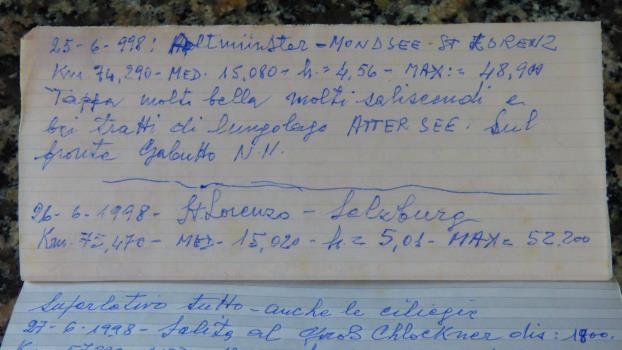 25-6-998: Altmünster - MONDSEE - St LORENZ
Km 74,290 - MED. 15,080 - h = 4,56 - MAX: = 48,900
Tappa molto bella molti saliscendi e
bei tratti di lungolago ATTER SEE. Sul
fronte Gabutto N.N.
26-6-1998 - St Lorenzo - Salzburg
Km. 75,470 - MED - 15,020 - h = 5,01 - MAX = 52.200
Superlativo tutto - anche le ciliegie
27-6-1998 - Salita al Groß Chlockner dis: 1800.
Km